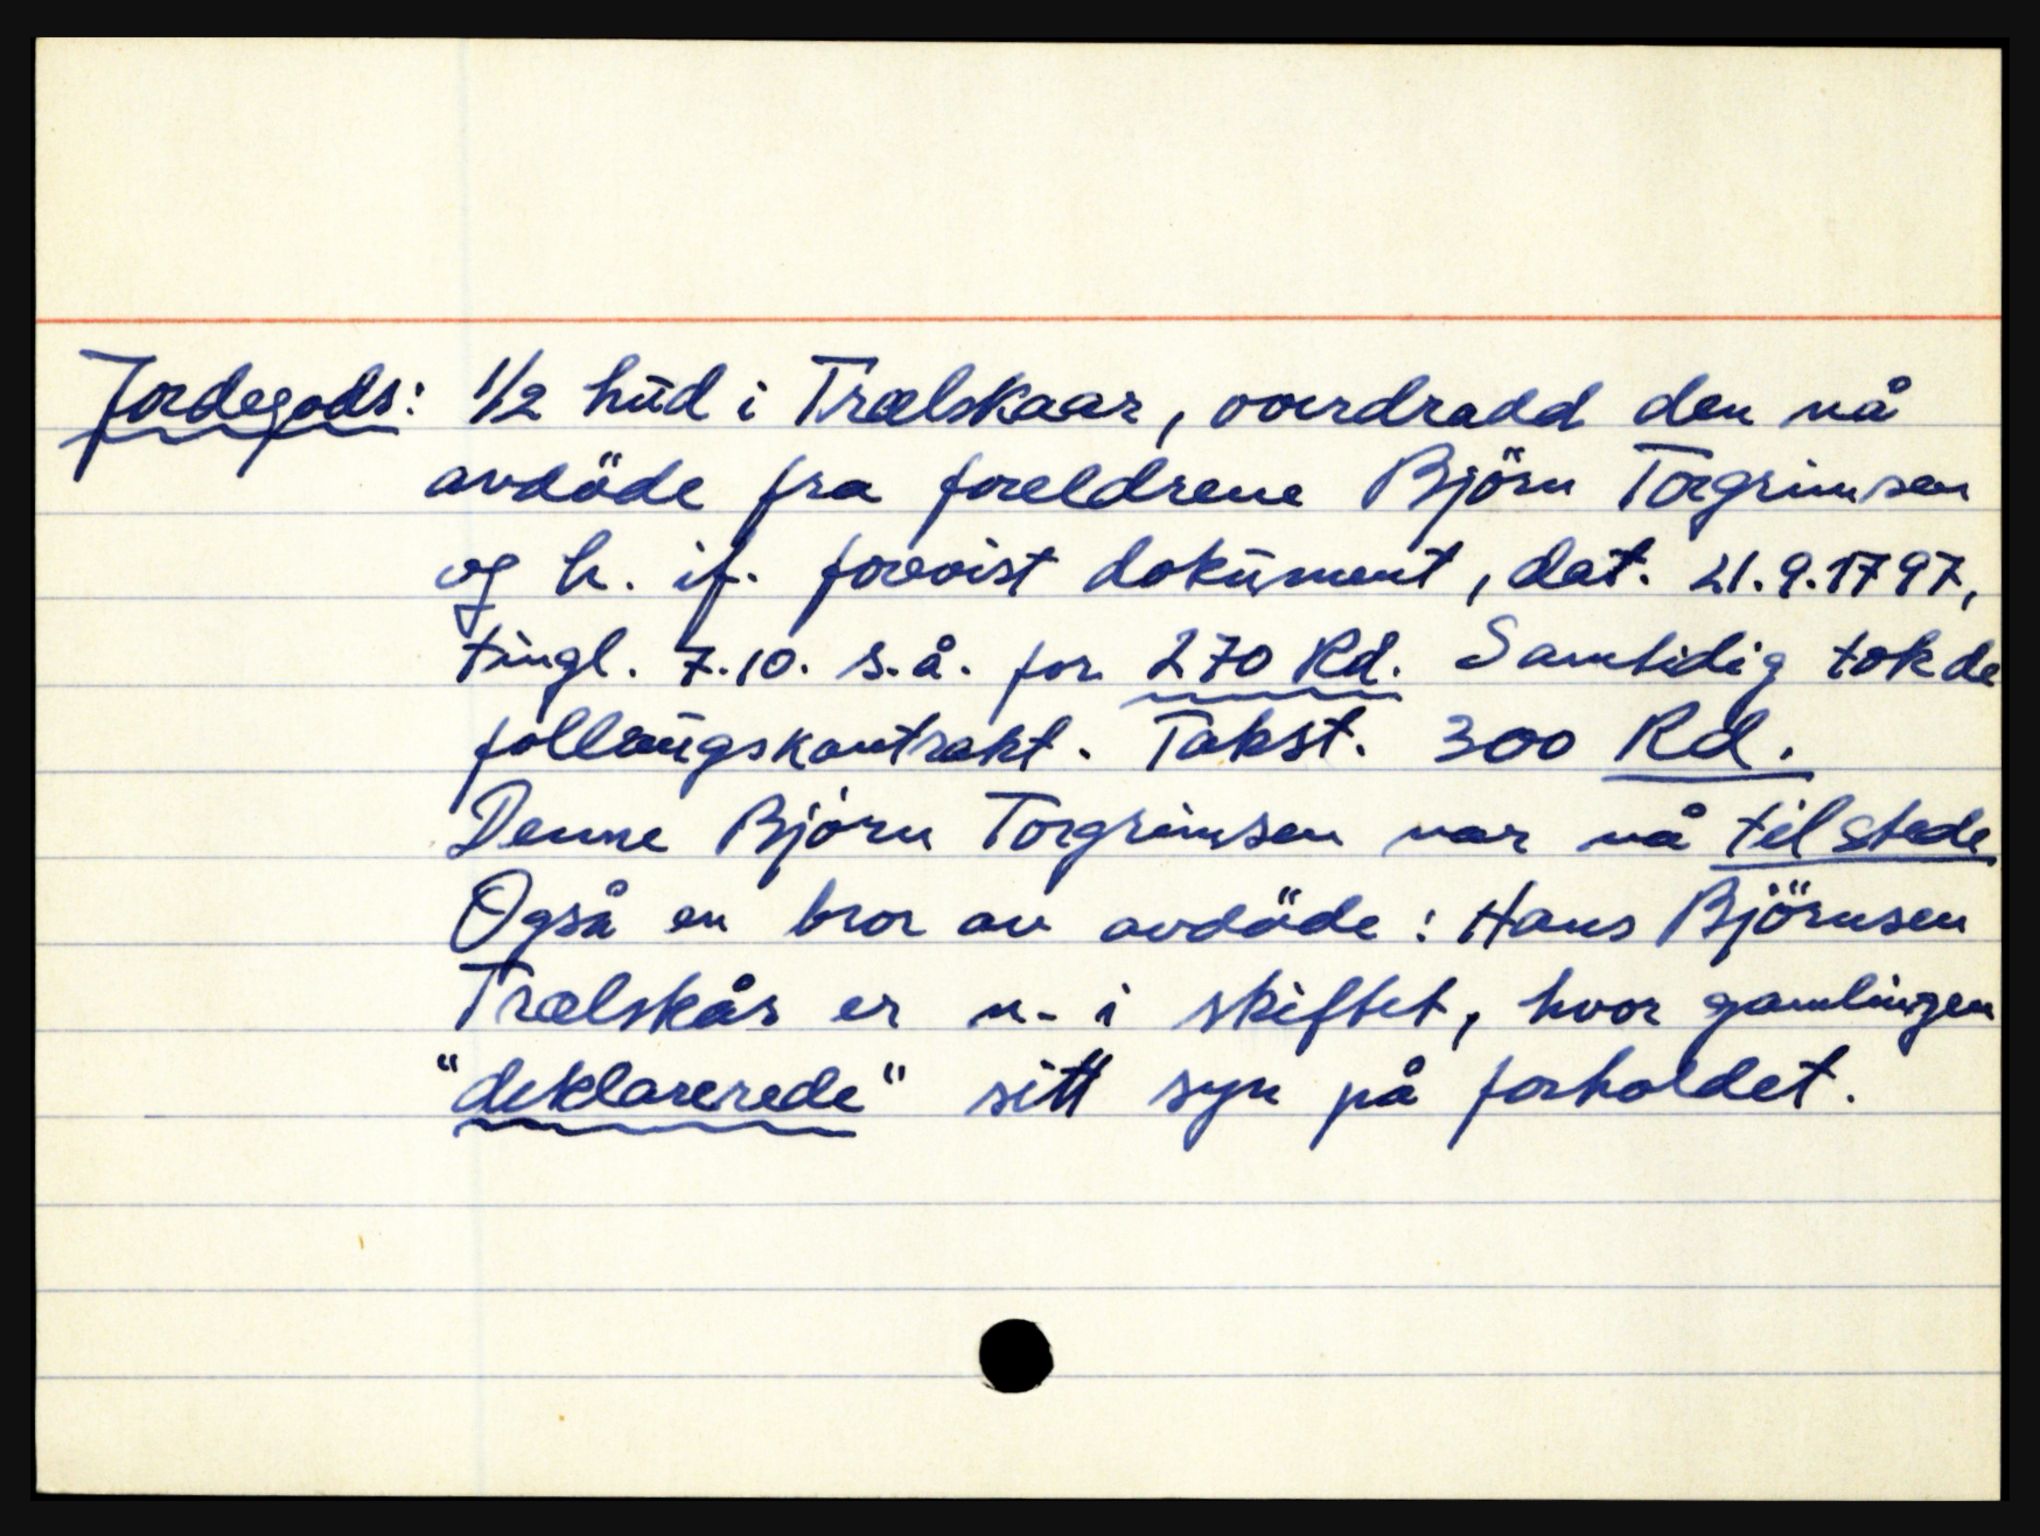 Jordegods: 1/2 hud i Trælskaar, overdradd den nå
avdöde fra foreldrene Björn Torgrimsen
og h. if. forevist dokument, dat. 21.9.1797,
tingl. 7.10. s.å. for 270 Rd. Samtidig tok de
follaugskontrakt. Takst. 300 Rd.
Denne Björn Torgrimsen var nå til stede
Også en bror av avdöde: Hans Björnsen
Trælskår er n- i skiftet, hvor gamlingen
"deklarerede" sitt syn på forholdet.